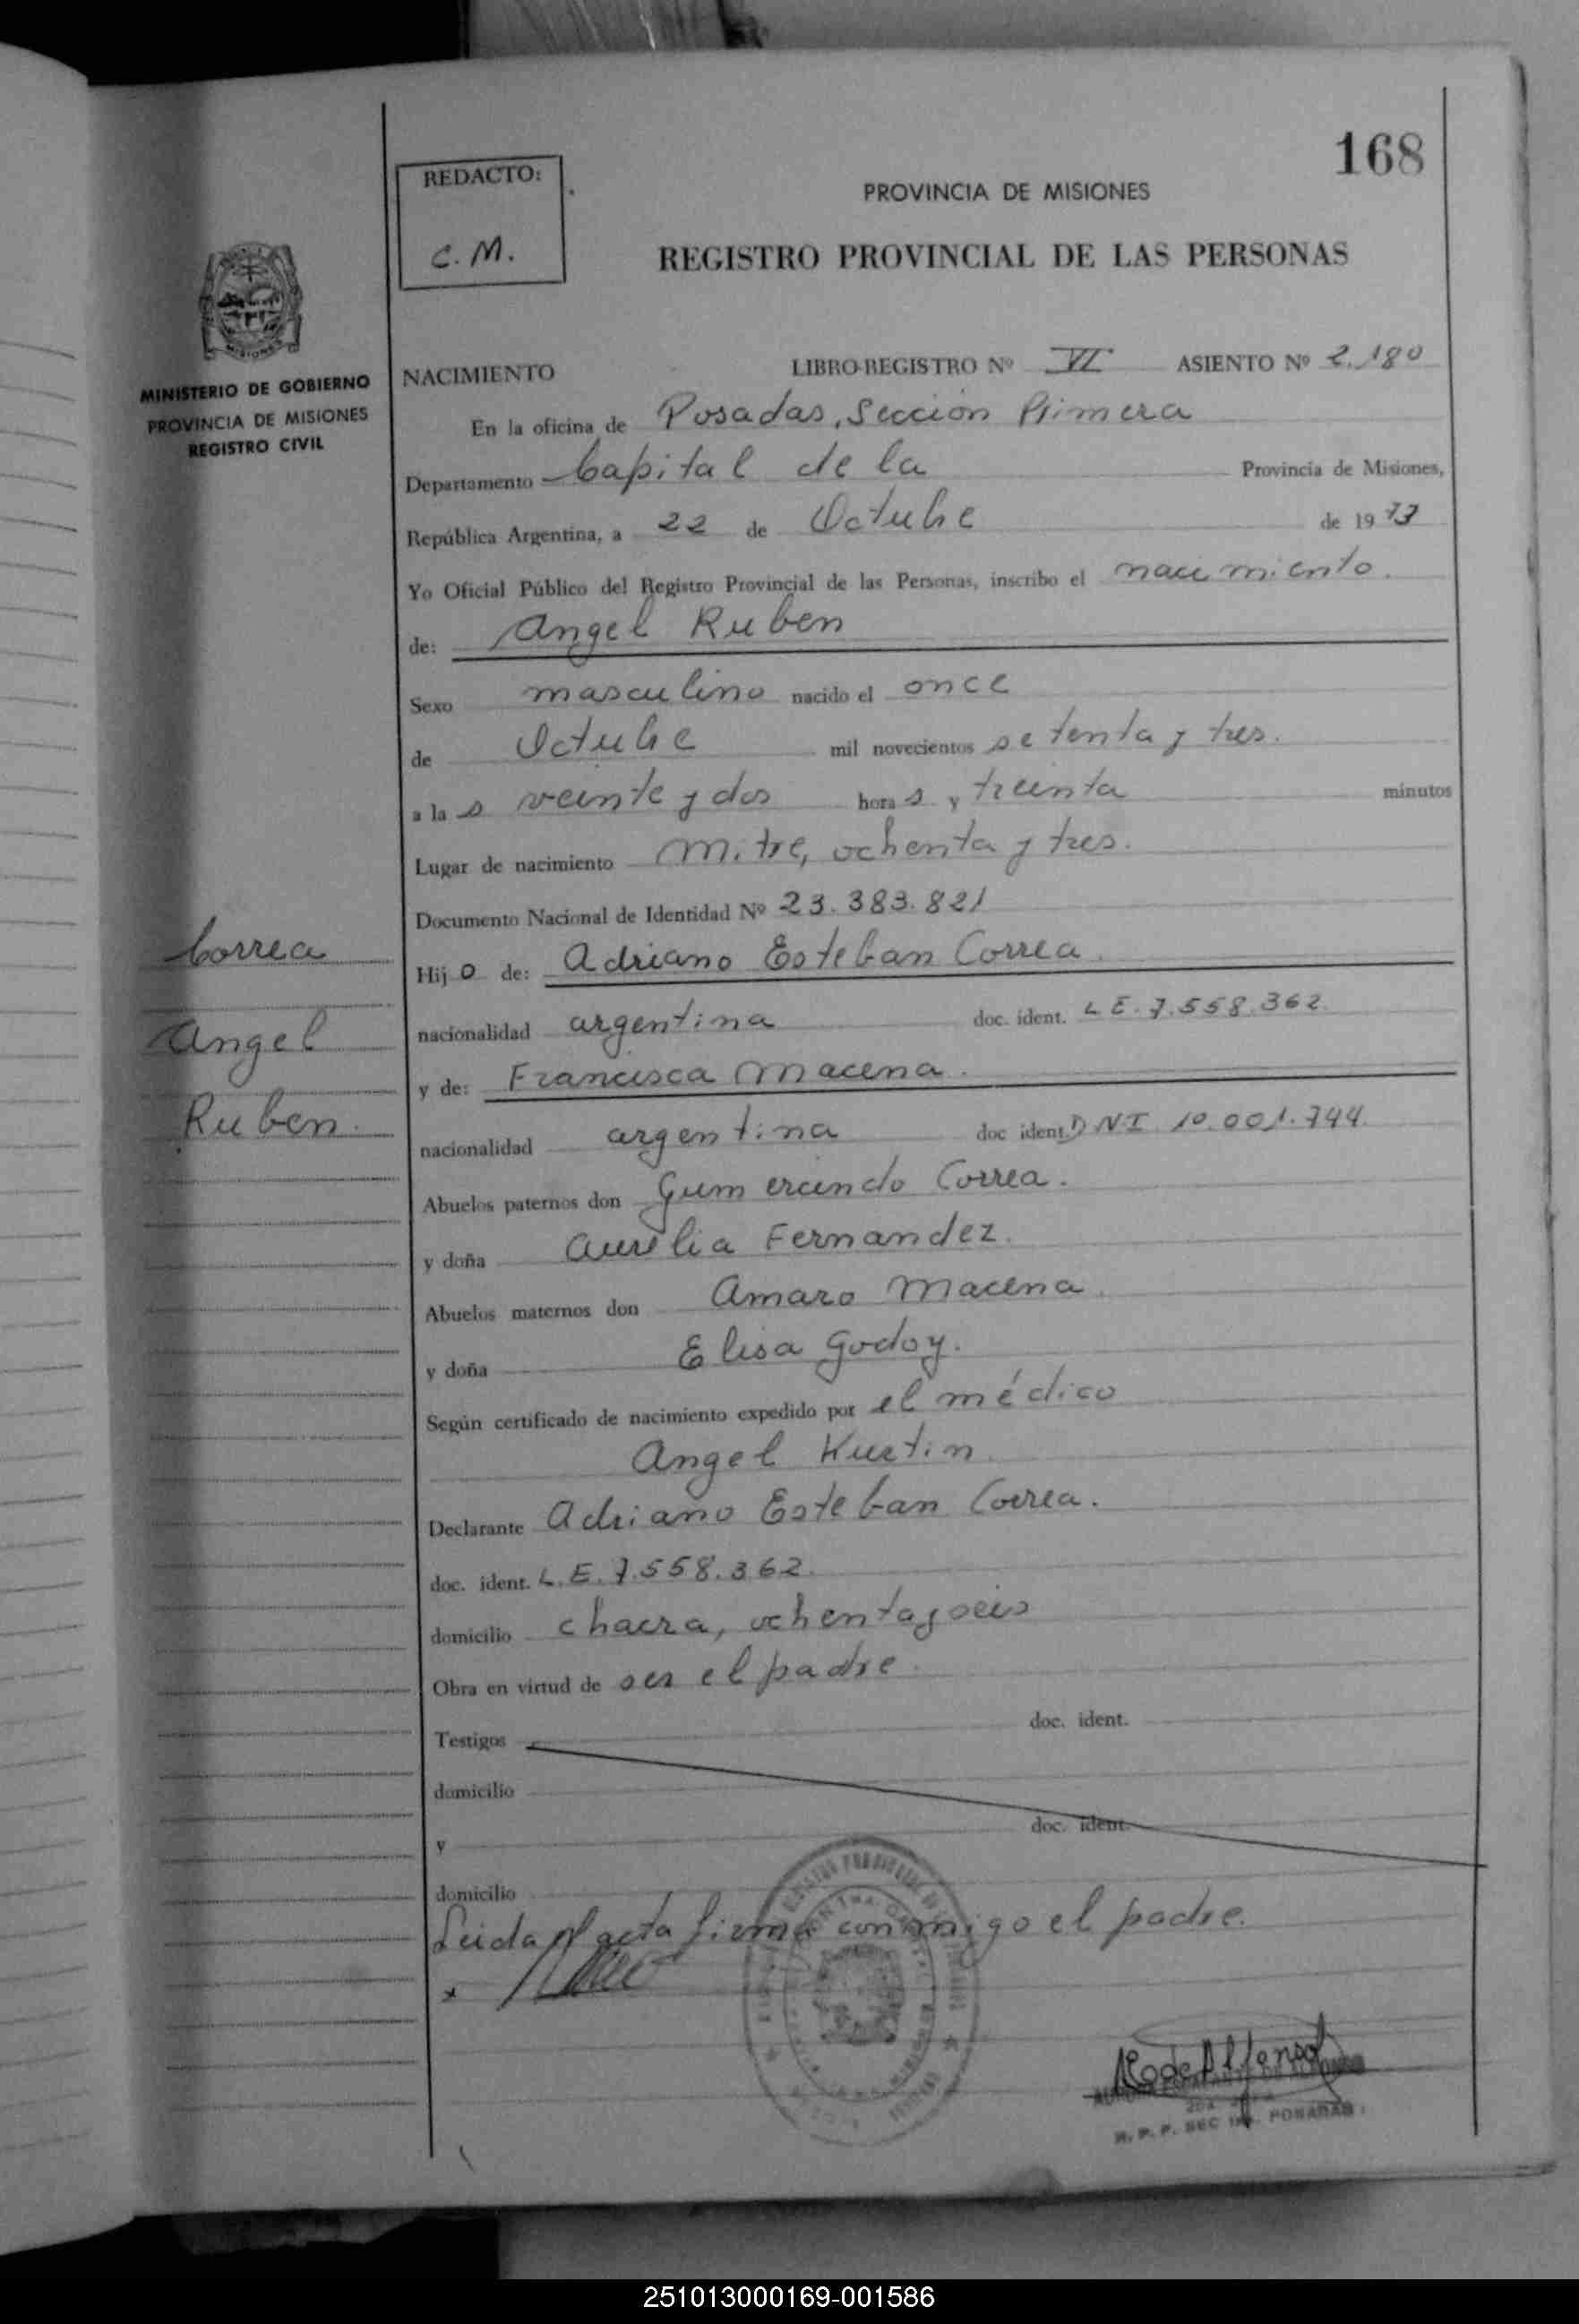 168
REDACTO:
C. M.
PROVINCIA DE MISIONES
REGISTRO PROVINCIAL DE LAS PERSONAS
MISIONES
MINISTERIO DE GOBIERNO
PROVINCIA DE MISIONES
REGISTRO CIVIL
NACIMIENTO LIBRO-REGISTRO Nº VI ASIENTO Nº 2.180
En la oficina de Posadas, Sección Primera
Departamento Capital de la Provincia de Misiones,
República Argentina, a 22 de Octubre de 1973
Yo Oficial Público del Registro Provincial de las Personas, inscribo el nacimiento.
de: Angel Ruben
Sexo masculino nacido el once
de Octubre mil novecientos setenta y tres.
a la s veinte y dos hora s y treinta minutos
Lugar de nacimiento Mitre, ochenta y tres.
Documento Nacional de Identidad Nº 23.383.821
Correa
Angel
Ruben.
Hij o de: Adriano Esteban Correa.
nacionalidad argentina doc. ident. L E. 7.558.362
y de: Francisca Macena.
nacionalidad argentina doc ident. DNI 10.001.744.
Abuelos paternos don Gumercindo Correa.
y doña Aurelia Fernandez.
Abuelos maternos don Amaro Macena.
y doña Elisa Godoy.
Según certificado de nacimiento expedido por el médico
Angel Kurtin.
Declarante Adriano Esteban Correa.
doc. ident. L.E. 7.558.362.
domicilio chacra, ochenta y seis
Obra en virtud de ser el padre.
Testigos doc. ident.
domicilio
y doc. ident.
domicilio
Leida el acta firma conmigo el padre.
x
R. P. P. SEC 1ra. POSADAS
251013000169-001586